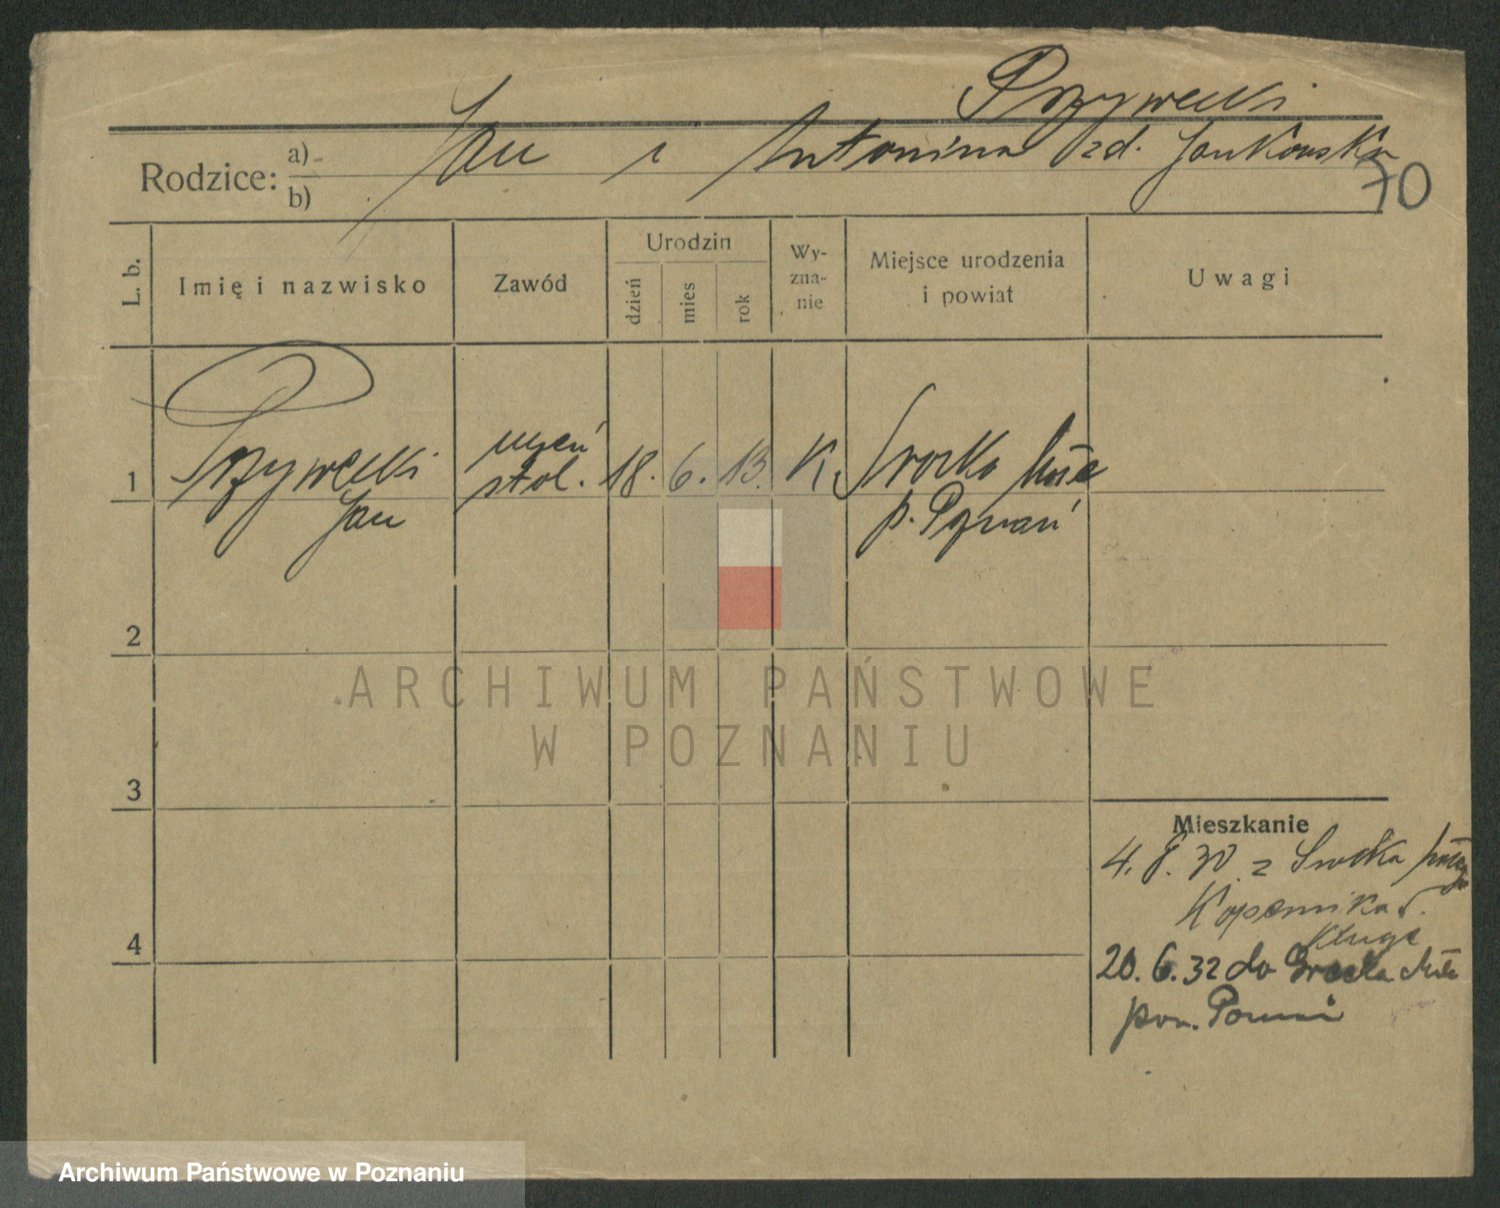 Przywecki
Rodzice: a) b) Jan i Antonina zd. Jankowska
70
L. b. Imię i nazwisko Zawód Urodzin dzień mies rok Wy-zna-nie Miejsce urodzenia i powiat Uwagi
1 Przywecki uczeń stol. 18. 6. 13. K. Srocko małe
Jan p. Poznań
2
ARCHIWUM PAŃSTWOWE
W POZNANIU
3
Mieszkanie
4. 8. 30 z Srocka
Kopernika
Kluge
4
20. 6. 32 do Srocka
pow. Poznań
Archiwum Państwowe w Poznaniu